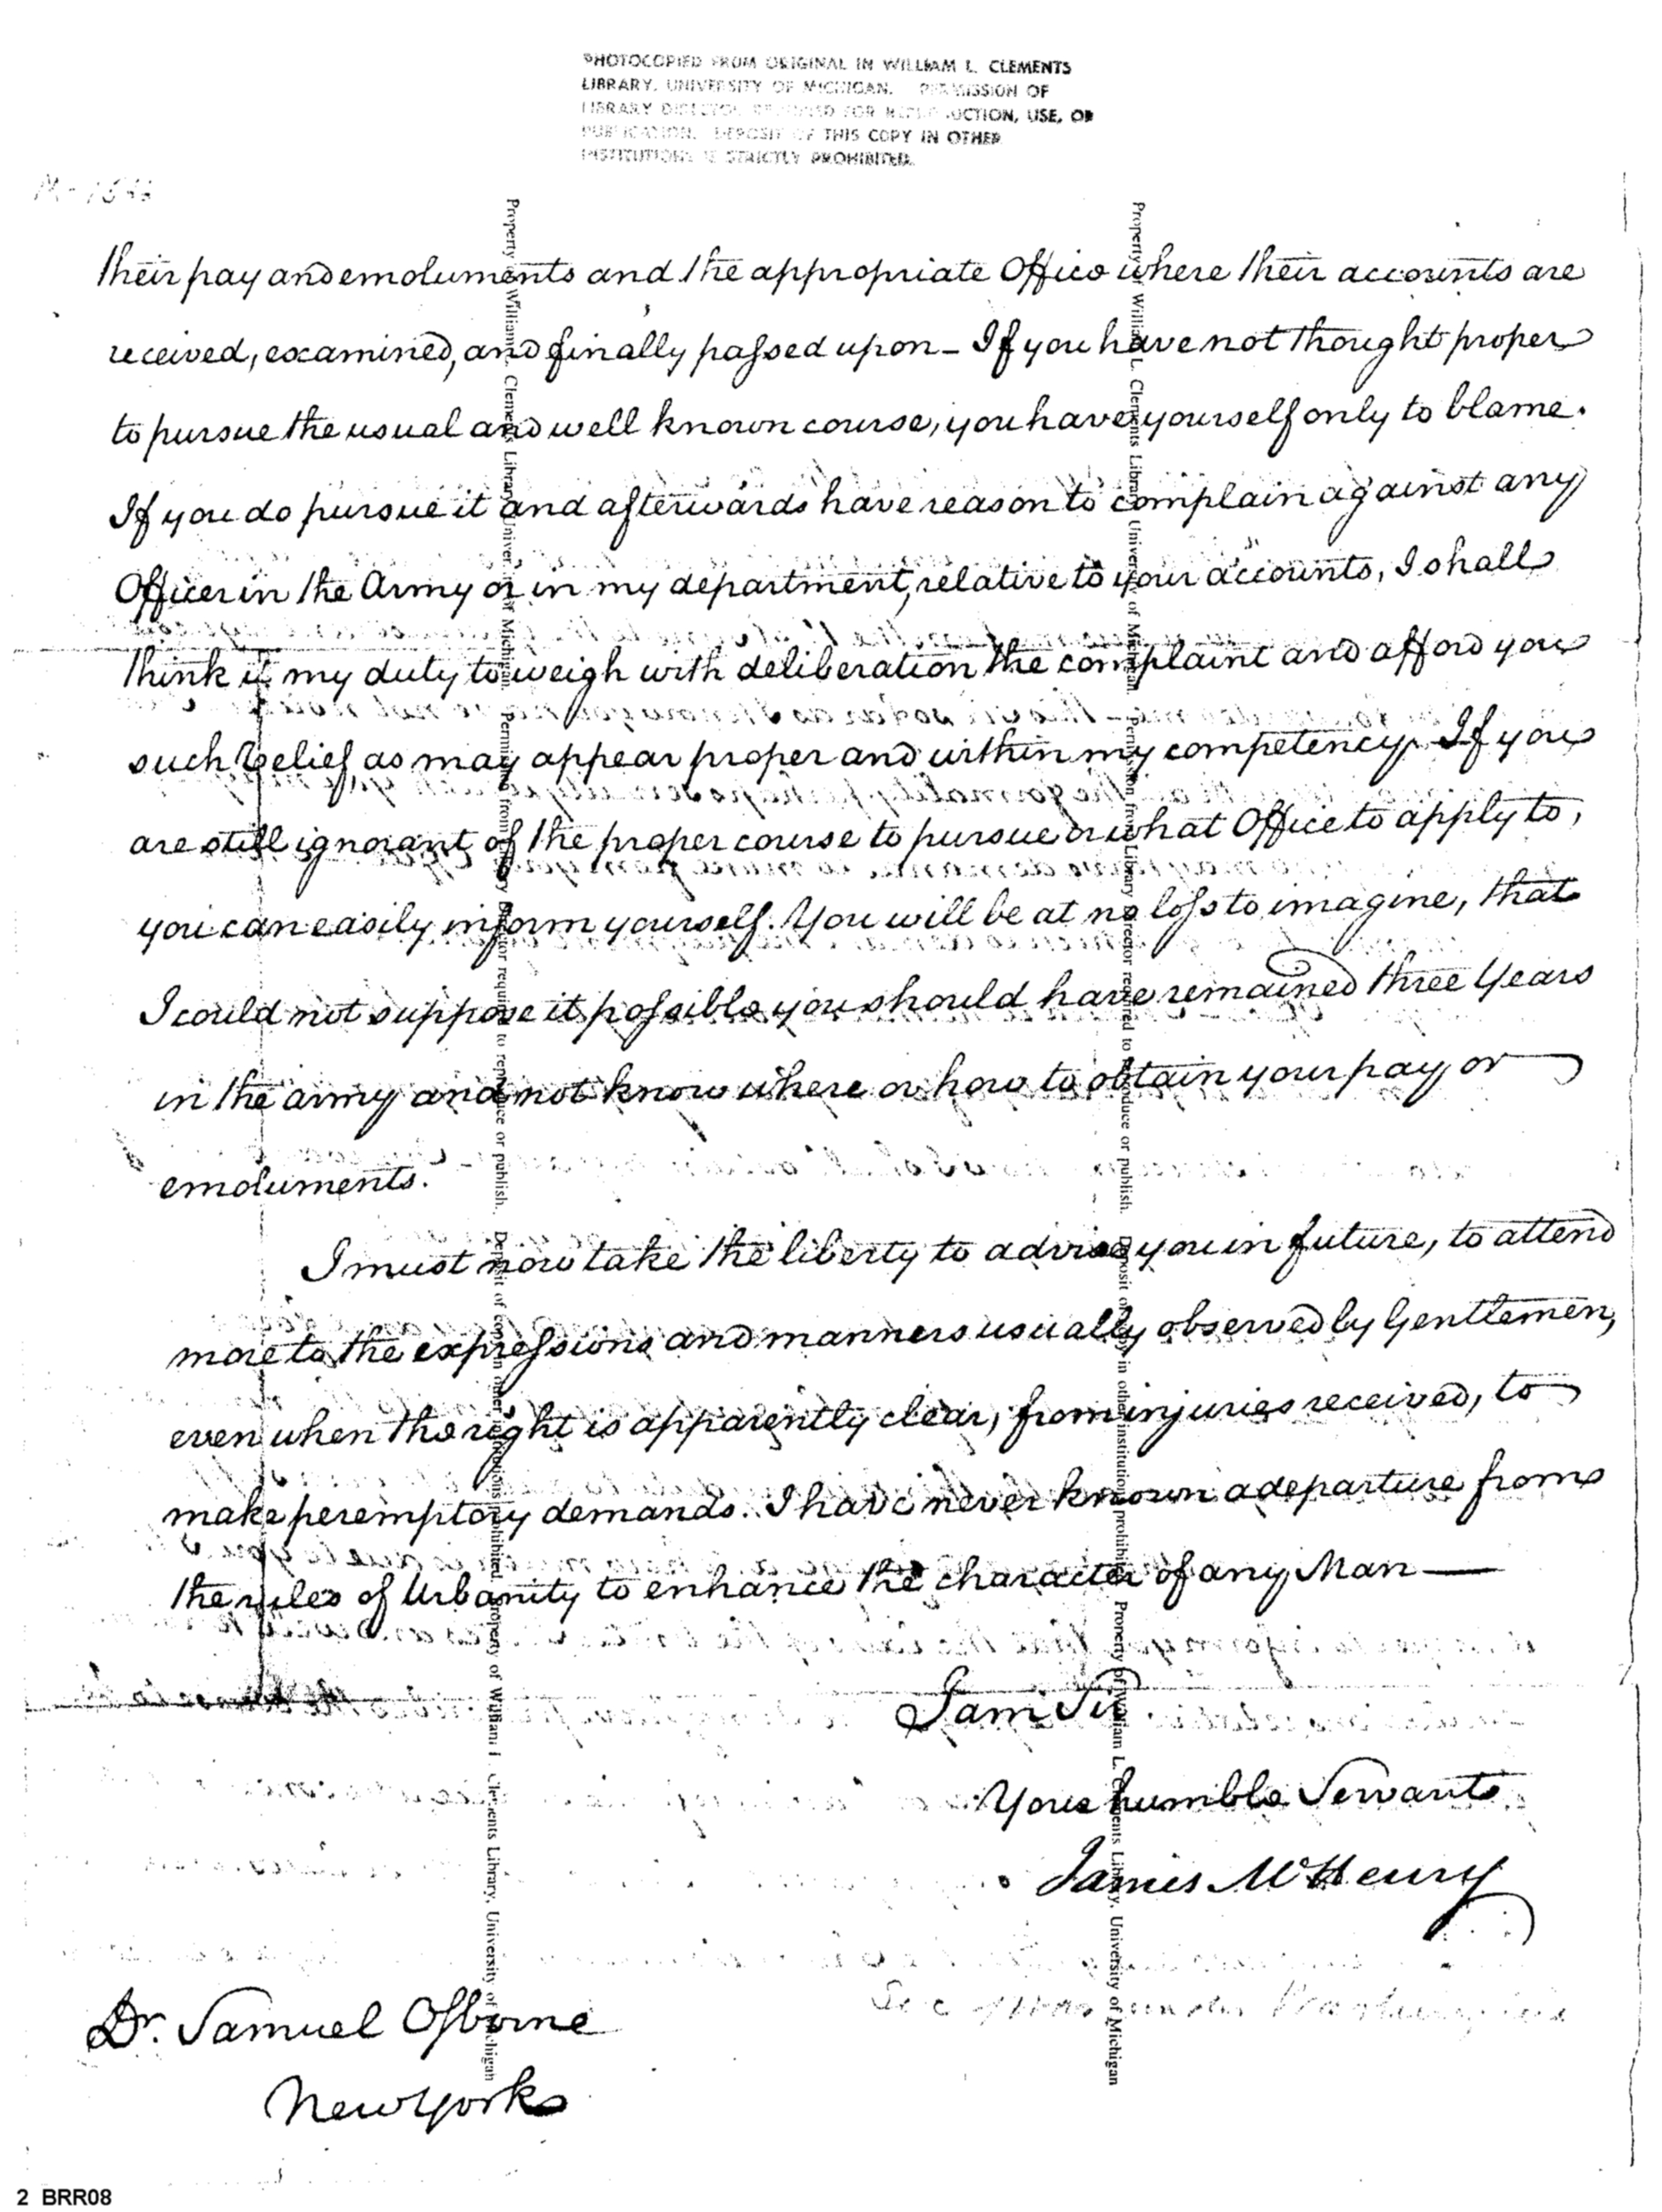 PHOTOCOPIED FROM ORIGINAL IN WILLIAM L. CLEMENTS
LIBRARY, UNIVERSITY OF MICHIGAN. PERMISSION OF
LIBRARY DIRECTOR REQUIRED FOR REPRODUCTION, USE, OR
PUBLICATION. DEPOSIT OF THIS COPY IN OTHER
INSTITUTIONS IS STRICTLY PROHIBITED.
their pay and emoluments and the appropriate Office where their accounts are
received, examined, and finally passed upon – If you have not thought proper
to pursue the usual and well known course, you have yourself only to blame.
If you do pursue it and afterwards have reason to complain against any
Officer in the Army or in my department, relative to your accounts, I shall
think it my duty to weigh with deliberation the complaint and afford you
such relief as may appear proper and within my competency. If you
are still ignorant of the proper course to pursue or what Office to apply to,
you can easily inform yourself. You will be at no loss to imagine, that
I could not suppose it possible you should have remained three Years
in the army and not know where or how to obtain your pay or
emoluments.
I must now take the liberty to advise you in future, to attend
more to the expressions and manners usually observed by Gentlemen,
even when the right is apparently clear, from injuries received, to
make peremptory demands. I have never known a departure from
the rules of Urbanity to enhance the character of any Man —
I am Sir.
Your humble Servant
James McHenry
Dr. Samuel Osborne
New York
Property of William L. Clements Library, University of Michigan. Permission from Library Director required to reproduce or publish. Deposit of copy in other institutions prohibited. Property of William L. Clements Library, University of Michigan
Property of William L. Clements Library, University of Michigan. Permission from Library Director required to reproduce or publish. Deposit of copy in other institutions prohibited. Property of William L. Clements Library, University of Michigan
2 BRR08